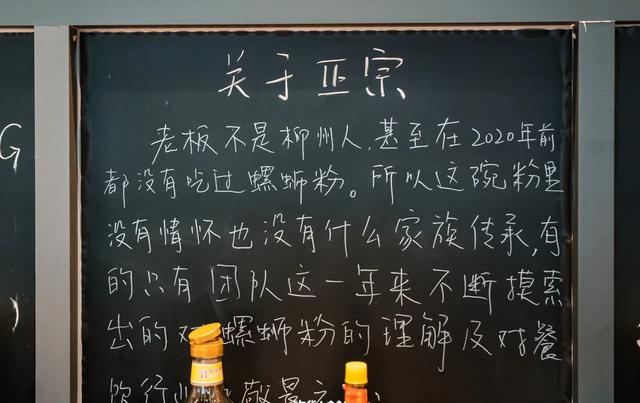 关于正宗
老板不是柳州人,甚至在2020年前
都没有吃过螺蛳粉。所以这碗粉里
没有情怀也没有什么家族传承,有
的只有团队这一年来不断摸索
出的对螺蛳粉的理解及对餐
饮行
G